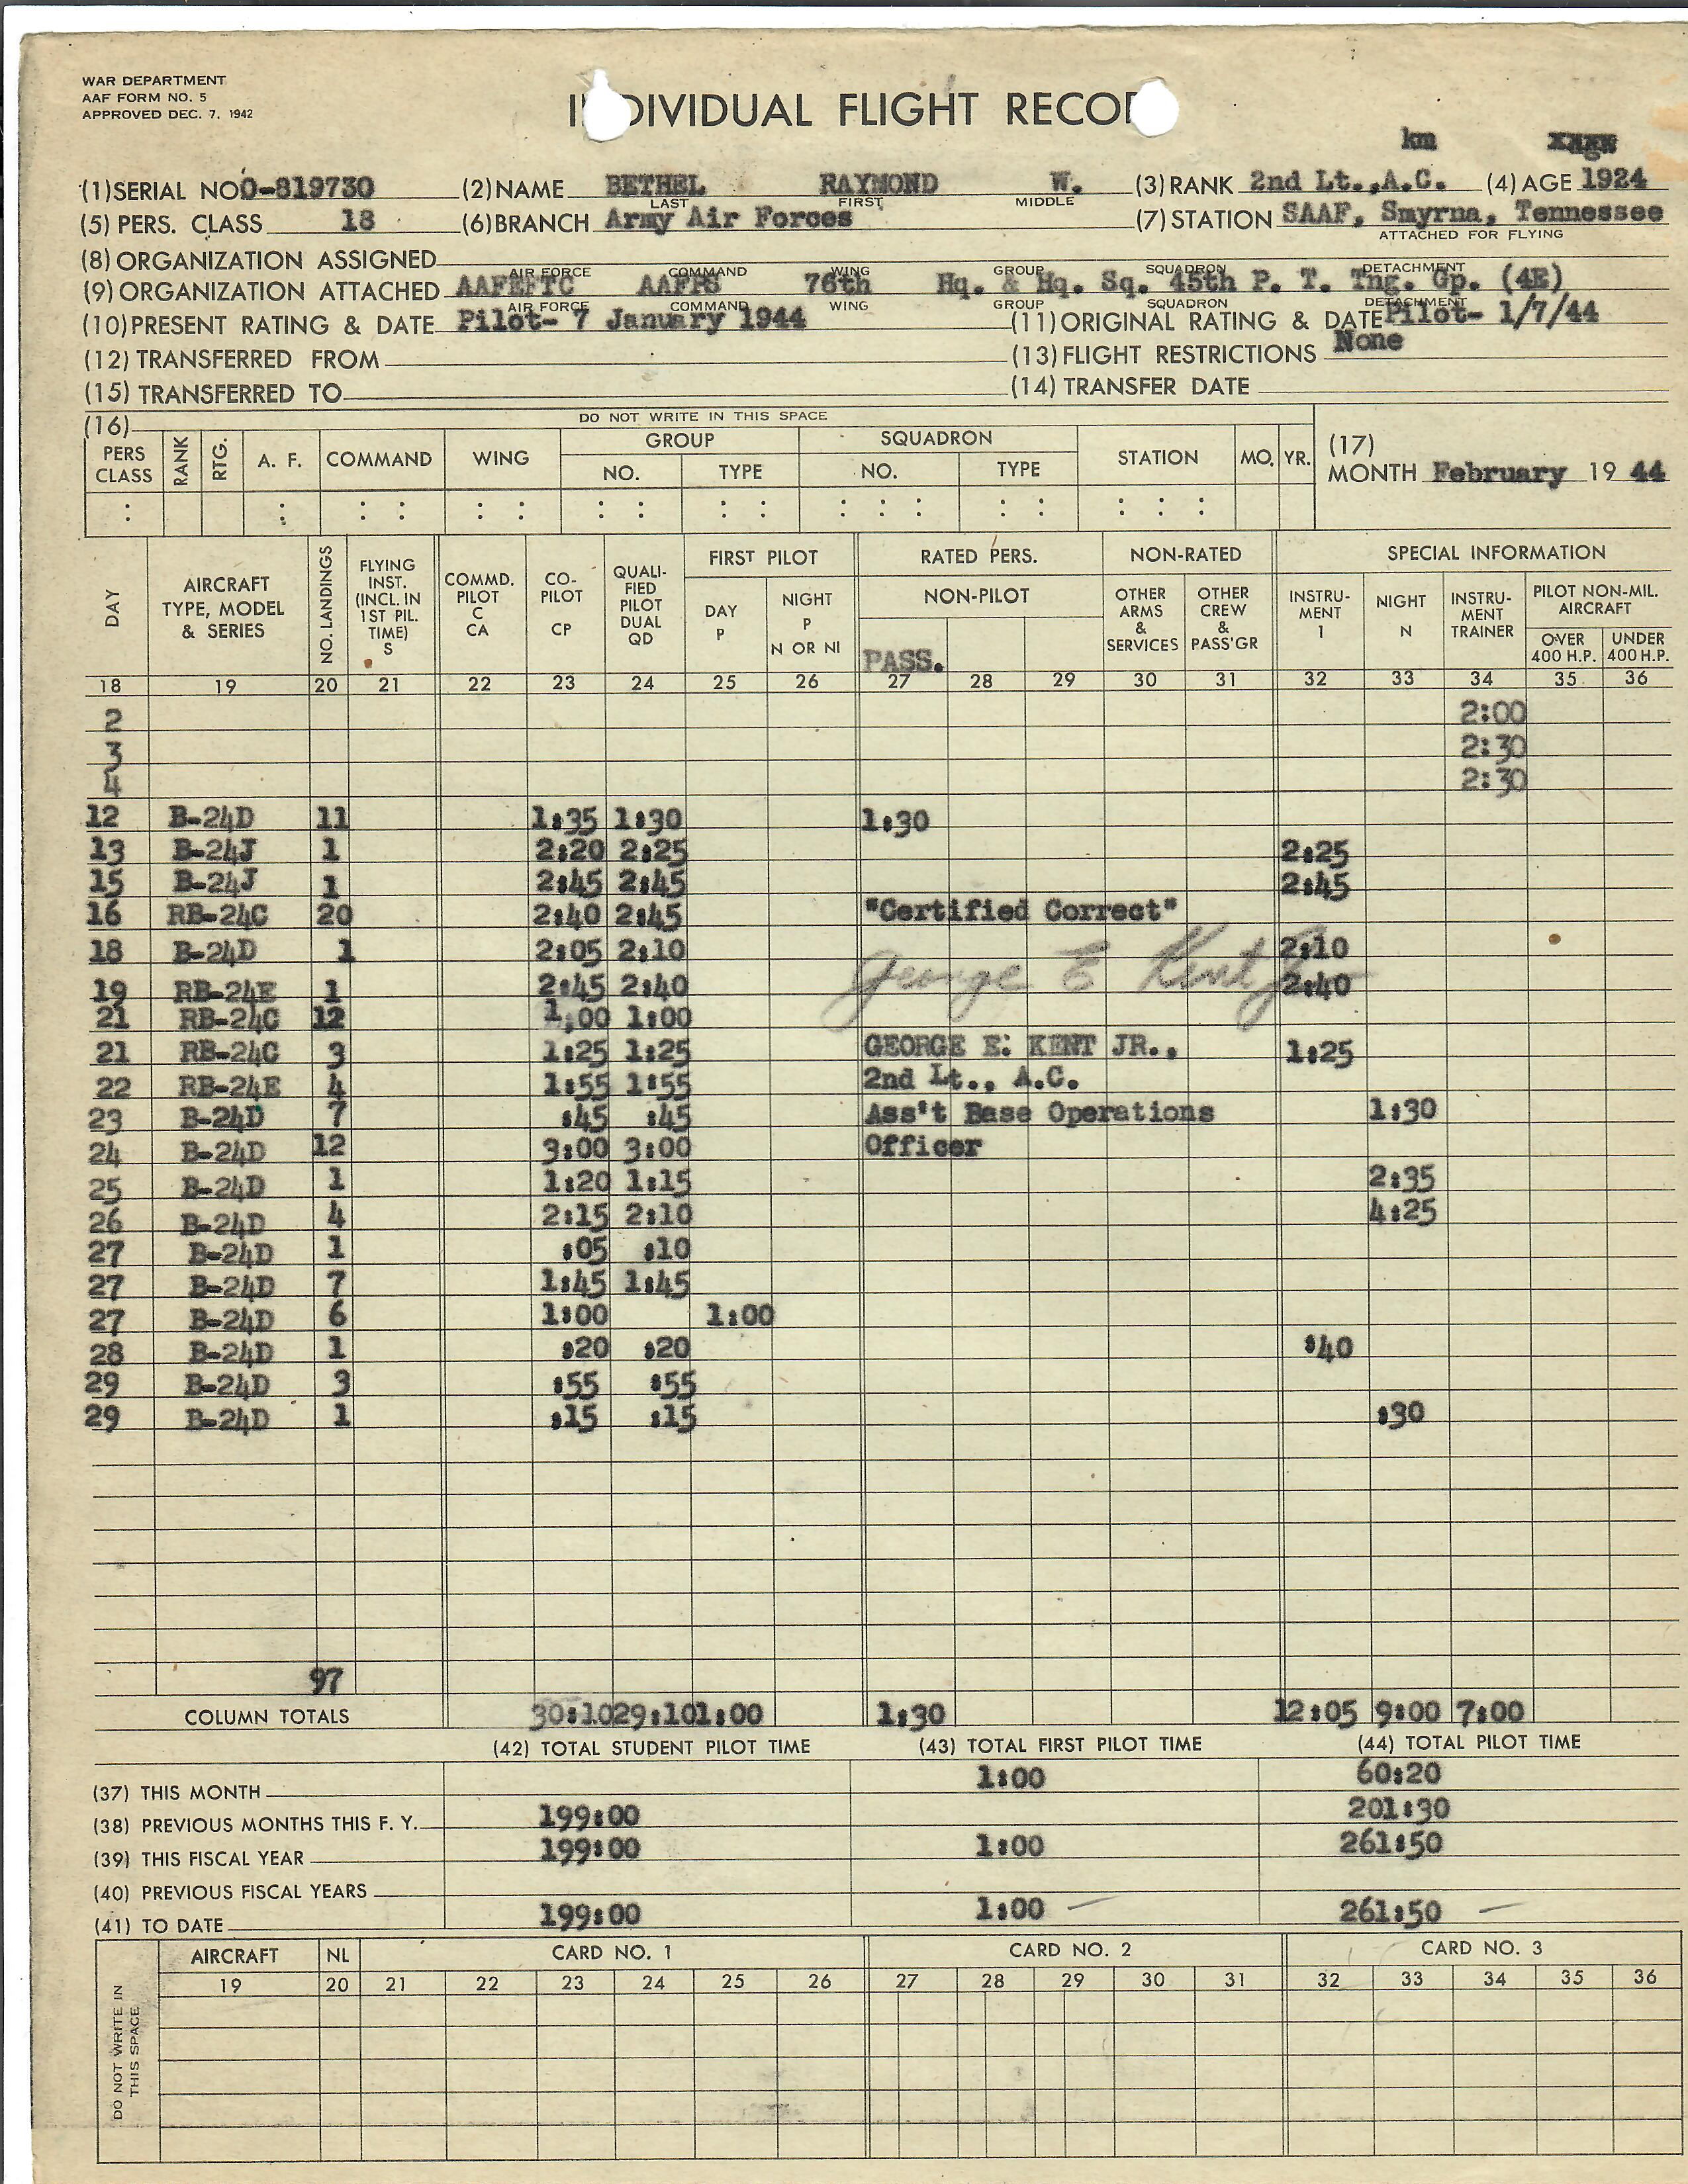 WAR DEPARTMENT
AAF FORM NO. 5
APPROVED DEC. 7, 1942
I DIVIDUAL FLIGHT RECO
km
(1) SERIAL NO. O-819730 (2) NAME BETHEL RAYMOND W. (3) RANK 2nd Lt., A.C. (4) AGE 1924
LAST FIRST MIDDLE
(5) PERS. CLASS 18 (6) BRANCH Army Air Forces (7) STATION SAAF, Smyrna, Tennessee
ATTACHED FOR FLYING
(8) ORGANIZATION ASSIGNED
AIR FORCE COMMAND WING GROUP SQUADRON DETACHMENT
(9) ORGANIZATION ATTACHED AAFEFTC AAFPS 76th Hq. & Hq. Sq. 45th P. T. Tng. Gp. (4E)
AIR FORCE COMMAND WING GROUP SQUADRON DETACHMENT
(10) PRESENT RATING & DATE Pilot- 7 January 1944 (11) ORIGINAL RATING & DATE Pilot- 1/7/44
(12) TRANSFERRED FROM (13) FLIGHT RESTRICTIONS None
(15) TRANSFERRED TO (14) TRANSFER DATE
(16) DO NOT WRITE IN THIS SPACE
PERS CLASS RANK RTG. A. F. COMMAND WING GROUP NO. TYPE SQUADRON NO. TYPE STATION MO. YR.
(17) MONTH February 19 44
DAY AIRCRAFT TYPE, MODEL & SERIES NO. LANDINGS FLYING INST. (INCL. IN 1ST PIL. TIME) S COMMD. PILOT C CA CO-PILOT CP QUALIFIED PILOT DUAL QD FIRST PILOT DAY P NIGHT P N OR NI RATED PERS. NON-PILOT PASS. NON-RATED OTHER ARMS & SERVICES OTHER CREW & PASS'GR SPECIAL INFORMATION INSTRUMENT I NIGHT N INSTRUMENT TRAINER PILOT NON-MIL. AIRCRAFT OVER 400 H.P. UNDER 400 H.P.
18 19 20 21 22 23 24 25 26 27 28 29 30 31 32 33 34 35 36
2 2:00
3 2:30
4 2:30
12 B-24D 11 1:35 1:30 1:30
13 B-24J 1 2:20 2:25 2:25
15 B-24J 1 2:45 2:45 2:45
16 RB-24C 20 2:40 2:45 "Certified Correct"
18 B-24D 1 2:05 2:10 2:10
George E Kent Jr
19 RB-24E 1 2:45 2:40 2:40
21 RB-24C 12 1:00 1:00
21 RB-24C 3 1:25 1:25 GEORGE E. KENT JR., 1:25
22 RB-24E 4 1:55 1:55 2nd Lt., A.C.
23 B-24D 7 :45 :45 Ass't Base Operations 1:30
24 B-24D 12 3:00 3:00 Officer
25 B-24D 1 1:20 1:15 2:35
26 B-24D 4 2:15 2:10 4:25
27 B-24D 1 :05 :10
27 B-24D 7 1:45 1:45
27 B-24D 6 1:00 1:00
28 B-24D 1 :20 :20 :40
29 B-24D 3 :55 :55
29 B-24D 1 :15 :15 :30
97
COLUMN TOTALS 30:10 29:10 1:00 1:30 12:05 9:00 7:00
(42) TOTAL STUDENT PILOT TIME (43) TOTAL FIRST PILOT TIME (44) TOTAL PILOT TIME
(37) THIS MONTH 1:00 60:20
(38) PREVIOUS MONTHS THIS F. Y. 199:00 201:30
(39) THIS FISCAL YEAR 199:00 1:00 261:50
(40) PREVIOUS FISCAL YEARS
(41) TO DATE 199:00 1:00 261:50
DO NOT WRITE IN THIS SPACE
AIRCRAFT NL CARD NO. 1 CARD NO. 2 CARD NO. 3
19 20 21 22 23 24 25 26 27 28 29 30 31 32 33 34 35 36